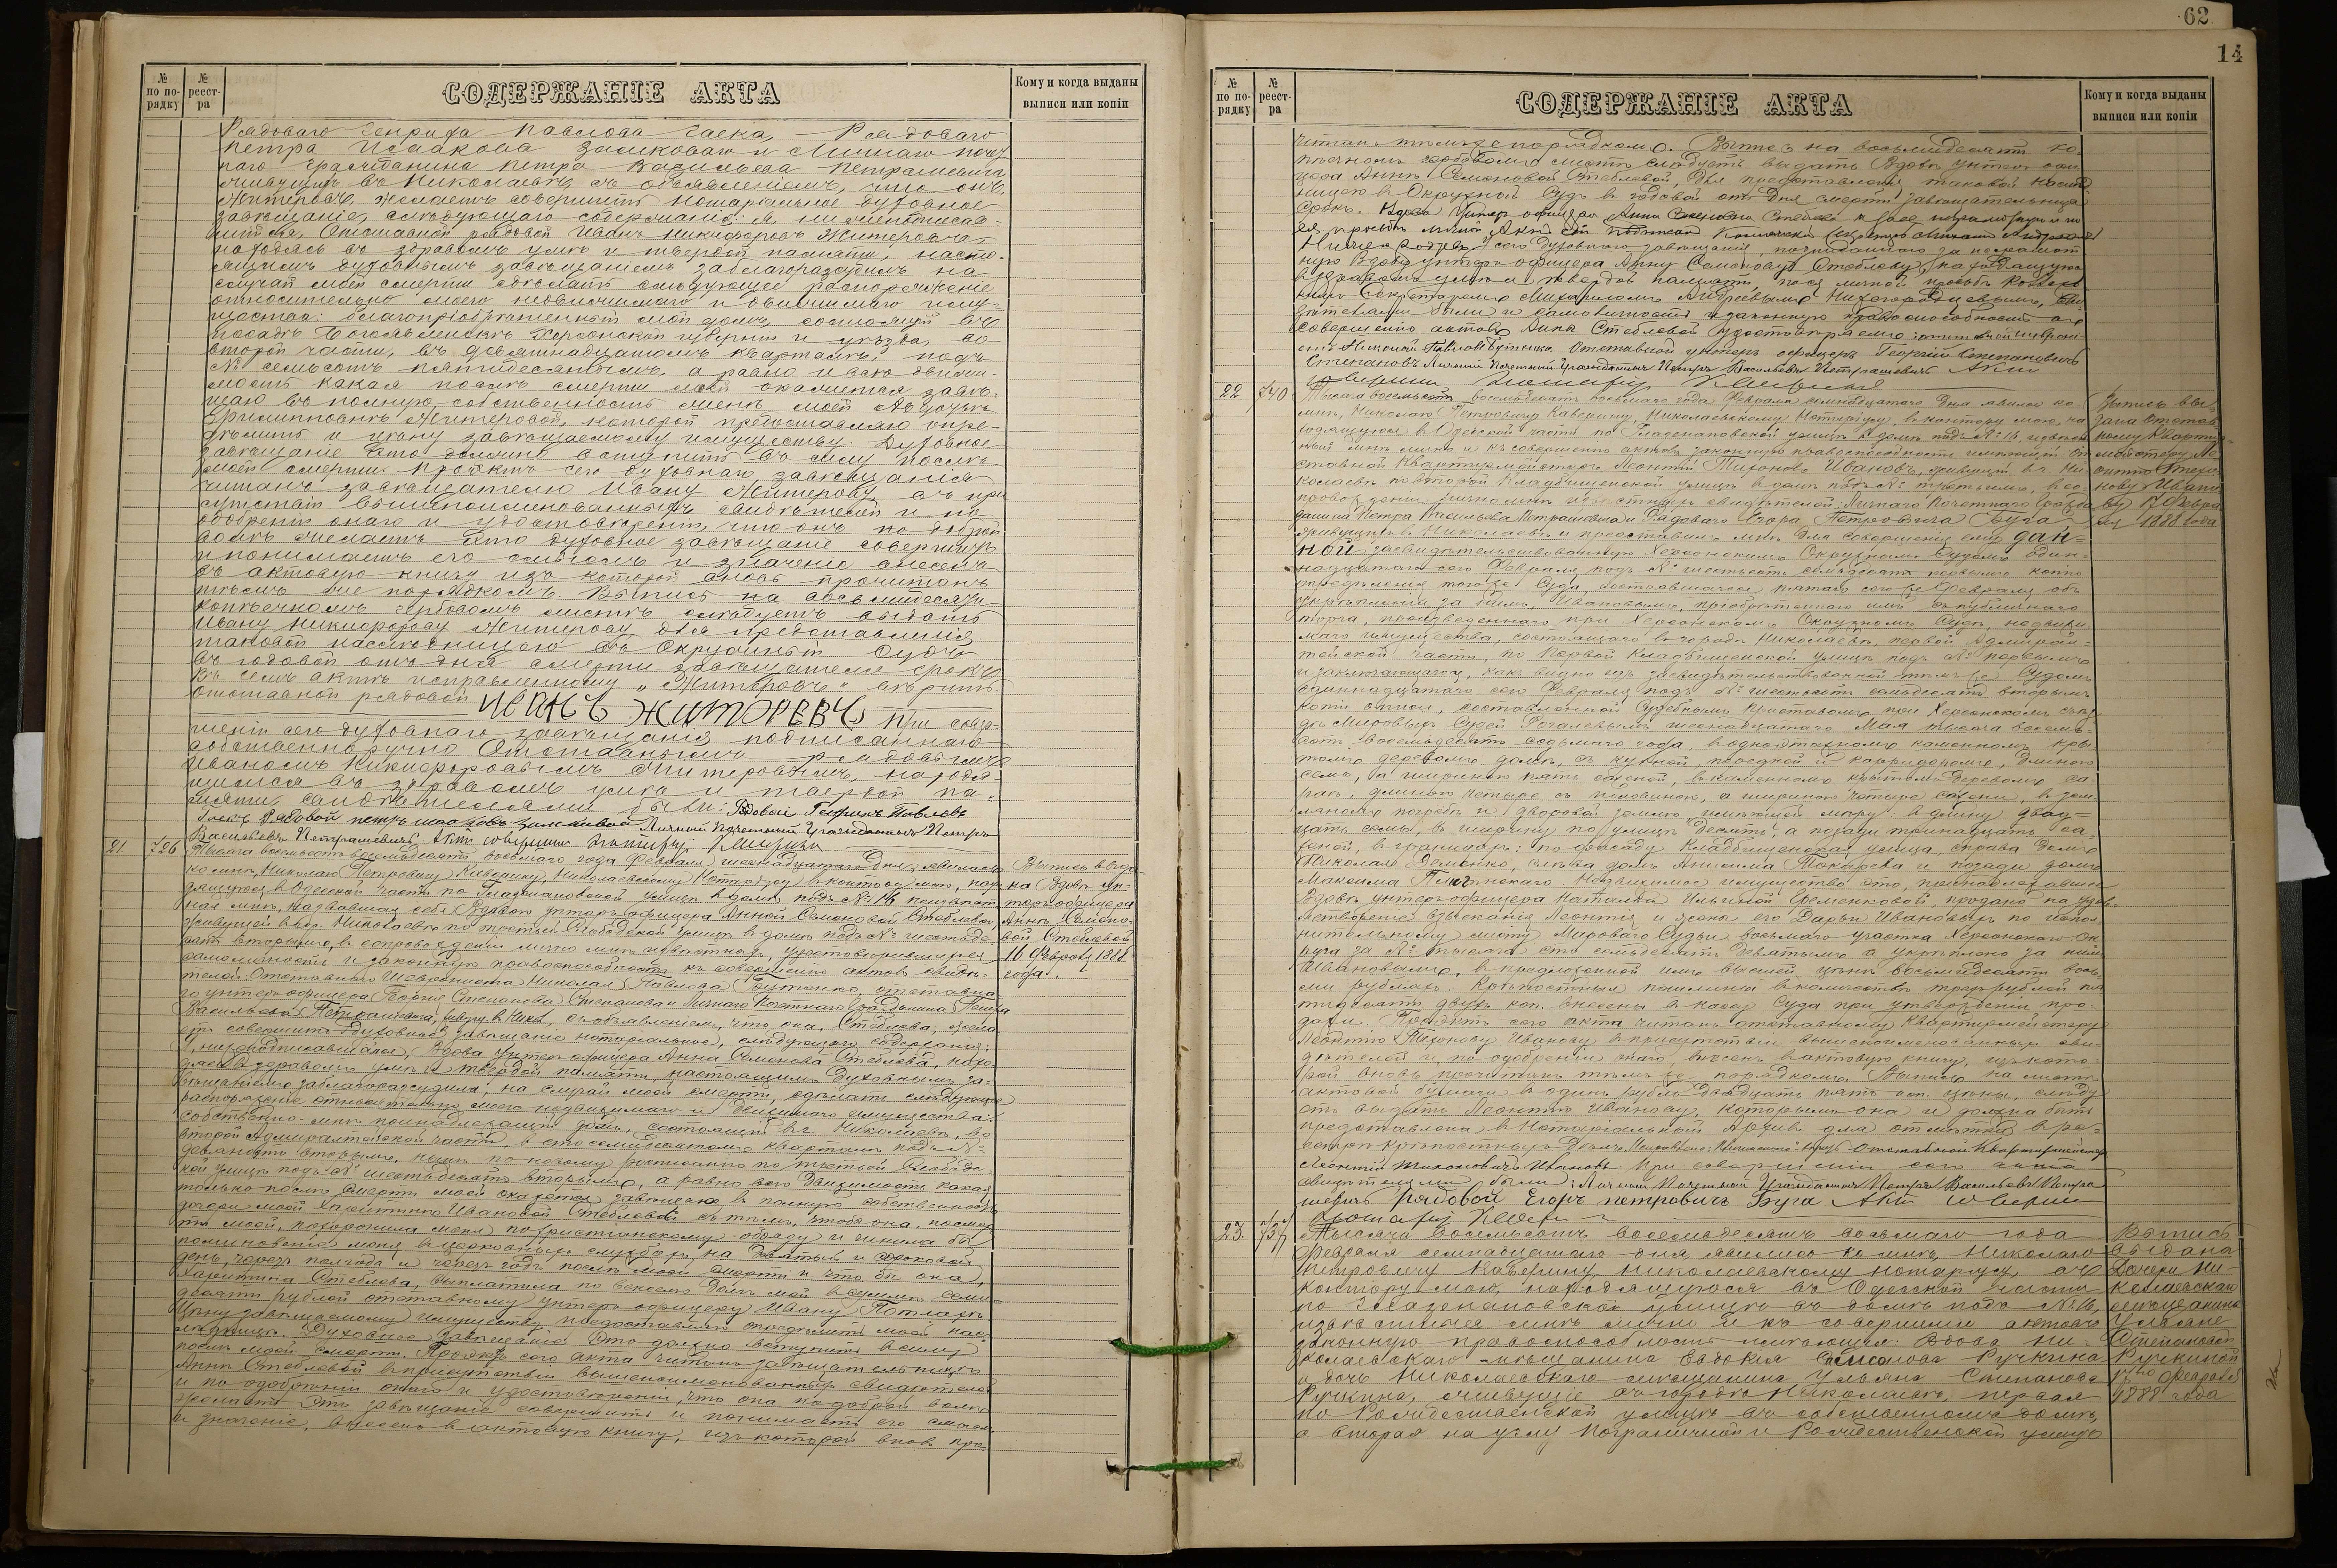 № по по-рядку
№ реест-ра
СОДЕРЖАНІЕ АКТА
Кому и когда выданы выписи или копіи
Рядоваго Генриха Павлова Гаека, Рядоваго
Петра Исаакова и Личнаго Почет
наго Гражданина Петра Васильева Петрашевича,
живущихъ въ Николаевѣ съ объявленіемъ, что онъ,
Житеревъ, желаетъ совершить нотаріальное духовное
завѣщаніе, слѣдующаго содержанія: Я, нижеподписав-
шійся, Отставной рядовой Иванъ Никифоровъ Житеревъ,
находясь въ здравомъ умѣ и твердой памяти, насто-
ящимъ духовнымъ завѣщаніемъ заблагоразсудилъ на
случай моей смерти сдѣлать слѣдующее распоряженіе
относительно моего недвижимаго и движимаго иму-
щества: благопріобрѣтенный мой домъ, состоящій въ
посадѣ Богоявленскѣ Херсонской губерніи и уѣзда, во
второй части, въ девятнадцатомъ кварталѣ, подъ
№ семьсотъ пятидесятымъ, а равно и всю движи-
мость какая послѣ смерти моей окажется завѣ-
щаю въ полную собственность женѣ моей Авдотьѣ
Филипповнѣ Житеревой, которой предоставляю опре-
дѣлить и цѣну завѣщаемому имуществу. Духовное
завѣщаніе это должно вступить въ силу послѣ
моей смерти. Проэктъ сего духовнаго завѣщанія
читанъ завѣщателю Ивану Житереву, въ при
сутствіи вышепоименованныхъ свидѣтелей и по
одобреніи онаго и удостовѣреніи, что онъ по доброй
волѣ желаетъ это духовное завѣщаніе совершить
и понимаетъ его смыслъ и значеніе внесенъ
въ актовую книгу изъ которой вновь прочитанъ
тѣмъ же порядкомъ. Выпись на восьмидесяти
копѣечномъ гербовомъ листѣ слѣдуетъ выдать
Ивану Никифорову Житереву для представленія
таковой наслѣдницею въ Окружный Судъ
въ годовой отъ дня смерти завѣщателя срокъ
Въ семъ актѣ исправленному „Житеревъ“ вѣрить.
отставной рядовой Иванъ Житоревъ При совер-
шеніи сего духовнаго завѣщанія, подписаннаго
собственноручно Отставнымъ рядовымъ
Иваномъ Никифоровымъ Житеревымъ, находя-
щимся въ здравомъ умѣ и твердой па-
мяти, свидѣтелями были: Рядовой Генрихъ Павловъ
Гаекъ Рядовой петръ Личный Почетный Гражданинъ Петръ
Васильевъ Петрашевичъ. Актъ совершилъ Нотаріусъ
21. 726 Тысяча восемьсотъ восемьдесятъ восьмаго года Февраля шестнадцатаго дня, явилась
ко мнѣ, Николаю Петровичу Каверину, Николаевскому Нотаріусу, въ контору мою, нахо
дящуюся въ Одесской части по Глазенаповской улицѣ въ домѣ подъ № 16, неизвѣст
ная мнѣ, назвавшая себя Вдовою унтеръ офицера Анной Семеновой Стеблевой,
живущей въ гор. Николаевѣ по третьей Слободской улицѣ въ домѣ подъ № шестьде
сятъ вторымъ, въ сопровожденіи лично мнѣ извѣстныхъ, удостовѣрившихъ ея
самоличность и законную правоспособность къ совершенію актовъ свидѣ-
телей: Отставнаго Николая Павлова Бутенко, отставна
го унтеръ офицера Георгія Степанова Степанова и Личнаго Почетнаго Гражданина Петра
Васильева Петрашевича, живущ. въ Никол., съ объявленіемъ, что она, Стеблева, жела
етъ совершить духовное завѣщаніе нотаріальное, слѣдующаго содержанія:
Я, нижеподписавшаяся, Вдова унтеръ офицера Анна Семенова Стеблева, нахо
дясь въ здравомъ умѣ и твердой памяти, настоящимъ духовнымъ за-
вѣщаніемъ заблагоразсудила, на случай моей смерти, сдѣлать слѣдующее
распоряженіе относительно моего недвижимаго и движимаго имущества:
собственно мнѣ принадлежащій домъ, состоящій въ г. Николаевѣ, во
второй Адмиралтейской части, въ сто семидесятомъ кварталѣ подъ №
девяносто вторымъ, нынѣ по новому росписанію по третьей Слободс
кой улицѣ подъ № шестьдесятъ вторымъ, а равно всю движимость какая
только послѣ смерти моей окажется завѣщаю въ полную собственность
дочери моей Харитинѣ Ивановой Стеблевой съ тѣмъ, чтобы она, послѣ смер
ти моей, похоронила меня по христіанскому обряду и чинила бы
поминовеніе меня въ церковныхъ службахъ, на девятый и сороковой
день, черезъ полгода и черезъ годъ послѣ моей смерти и что бы она,
Харитина Стеблева, выплатила по векселю долгъ мой въ суммѣ семи-
десяти рублей отставному унтеръ офицеру Ивану
Цѣну завѣщаемому имуществу предоставляю опредѣлить моей нас-
лѣдницѣ. Духовное завѣщаніе это должно вступить въ силу
послѣ моей смерти. Проэктъ сего акта читанъ завѣщательницѣ
Аннѣ Стеблевой въ присутствіи вышепоименованныхъ свидѣтелей
и по одобреніи онаго и удостовѣреніи, что она по доброй волѣ
желаетъ это завѣщаніе совершить и понимаетъ его смыслъ
и значеніе, внесенъ въ актовую книгу, изъ которой вновь про-
Выпись выда-
на Вдовѣ Ун-
теръ офицера
Аннѣ Семено-
вой Стеблевой
16 Февраля 1888
года.
62
14
№ по по-рядку
№ реест-ра
СОДЕРЖАНІЕ АКТА
Кому и когда выданы выписи или копіи
читанъ тѣмъ же порядкомъ. Выпись на восьмидесяти ко-
пѣечномъ гербовомъ листѣ слѣдуетъ выдать Вдовѣ унтеръ офи
цера Аннѣ Семеновой Стеблевой, для представленія таковой наслѣд
ницею въ Окружной Судъ въ годовой отъ дня смерти завѣщательницы
срокъ. Вдова Унтеръ офицера Анна Семенова Стеблева а за нее неграмотную и по
ея просьбѣ личной
сего духовнаго завѣщанія, подписаннаго за неграмот
ную Вдову унтеръ офицера Анну Семенову Стеблеву, находящуюся
въ здравомъ умѣ и твердой памяти, по ея личной просьбѣ
Секретаремъ Михаиломъ Андреевымъ Нижегородцевымъ, сви-
дѣтелями были и самоличность и законную правоспособность къ
совершенію актовъ Анны Стеблевой удостовѣряемъ: отставной
Николай Павловъ Бутенко. Отставной унтеръ офицеръ Георгій Степановичъ
Степановъ Личный Почетный Гражданинъ Петръ Васильевъ Петрашевичъ Актъ
совершилъ Нотаріусъ
22 740 Тысяча восемьсотъ восемьдесятъ восьмаго года Февраля семнадцатаго дня явился ко
мнѣ, Николаю Петровичу Каверину, Николаевскому Нотаріусу, въ контору мою, на
ходящуюся въ Одесской части по Глазенаповской улицѣ въ домѣ подъ № 16, извѣст
ный мнѣ лично и къ совершенію актовъ законную правоспособность имѣющій От
ставной Квартирмейстеръ Леонтій Тихоновъ Ивановъ, живущій въ г. Ни
колаевѣ по второй Кладбищенской улицѣ въ домѣ подъ № третьимъ, въ со
провожденіи лично мнѣ извѣстныхъ свидѣтелей: Личнаго Почетнаго Граж
данина Петра Васильева Петрашевича и Рядоваго Егора Петровича Буга,
живущихъ въ Николаевѣ и представилъ мнѣ для совершенія сего дан-
ной засвидѣтельствованную Херсонскимъ Окружнымъ Судомъ один-
надцатаго сего Февраля подъ № шестьсотъ семьдесятъ первымъ копію
опредѣленія того же Суда, состоявшагося пятаго сего же Февраля объ
укрѣпленіи за нимъ, Ивановымъ, пріобрѣтеннаго имъ съ публичнаго
торга, произведеннаго при Херсонскомъ Окружномъ Судѣ, недвижи
маго имущества, состоящаго въ городѣ Николаевѣ, первой Адмирал-
тейской части, по Первой Кладбищенской улицѣ подъ № первымъ
и заключающагося, какъ видно изъ засвидѣтельствованной тѣмъ же Судомъ
одиннадцатаго сего Февраля подъ № шестьсотъ семьдесятъ вторымъ
копіи описи, составленной Судебнымъ Приставомъ при Херсонскомъ съѣз
дѣ Мировыхъ Судей Рогалевымъ шестнадцатаго Мая тысяча восемь-
сотъ восемьдесятъ седьмаго года, въ одноэтажномъ каменномъ кры
томъ деревомъ домѣ, съ кухней, и корридоромъ, длиною
семь, а шириною пять саженей, въ каменномъ крытомъ деревомъ са-
раѣ, длиною четыре съ половиною, а шириною четыре сажени, въ зем-
ляномъ погребѣ и дворовой землѣ имѣющей мѣру: въ длину двад-
цать семь, въ ширину по улицѣ десять, а позади тринадцать са-
женей, въ границахъ: по фасаду Кладбищенская улица, справа домъ
Николая Деменко, слѣва домъ Анисима Токарева и позади домъ
Максима Недвижимое имущество это, принадлежавшее
Вдовѣ унтеръ офицера Наталіи Ильиной Семенковой, продано на удов-
летвореніе взысканія Леонтія и жены его Дарьи Ивановыхъ по испол-
нительному листу Мироваго Судьи восьмаго участка Херсонскаго Ок-
руга за № тысяча сто семьдесятъ девятымъ и укрѣплено за нимъ
Ивановымъ, въ предложенной имъ высшей цѣнѣ восьмидесяти вось-
ми рубляхъ. Крѣпостныя пошлины въ количествѣ трехъ рублей пя
тидесяти двухъ коп. внесены въ кассу Суда при утвержденіи про-
дажи. Проэктъ сего акта читанъ отставному Квартирмейстеру
Леонтію Тихонову Иванову въ присутствіи вышепоименованныхъ сви-
дѣтелей и по одобреніи онаго внесенъ въ актовую книгу, изъ кото-
рой вновь прочитанъ тѣмъ же порядкомъ. Выпись на листѣ
актовой бумаги въ одинъ рубль двадцать пять коп. цѣны, слѣду
етъ выдать Леонтію Иванову, которымъ она и должна быть
представлена въ Нотаріальный Архивъ для отмѣтки въ ре-
естрѣ крѣпостныхъ дѣлъ. Отставной Квартирмейстеръ
Леонтій Тихоновичъ Ивановъ. При совершеніи сего акта
свидѣтелями были: Личный Почетный Гражданинъ Петръ Васильевъ Петра
шевичъ рядовой Егоръ петровичъ Буга Актъ совершилъ
Нотаріусъ
Выпись вы-
дана Отстав
ному Кварти-
мейстеру Ле-
онтію Тихо-
нову Ивано
ву 17 Февра
ля 1888 года
23. 757 Тысяча восемьсотъ восемьдесятъ восьмаго года
Февраля семнадцатаго дня явились ко мнѣ, Николаю
Петровичу Каверину, Николаевскому нотаріусу, въ
контору мою, находящуюся въ Одесской части
по Глазенаповской улицѣ въ домѣ подъ № 16,
извѣстныя мнѣ лично и къ совершенію актовъ
законную правоспособность имѣющія: Вдова Ни-
колаевскаго мѣщанина Евдокія Ручкина
и дочь Николаевскаго мѣщанина Ульяна Степанова
Ручкина, живущіе въ городѣ Николаевѣ, первая
по Рождественской улицѣ въ собственномъ домѣ,
а вторая на углу Пограничной и Рождественской улицъ
Выпись
выдана
Дочери Ни-
колаевскаго
мѣщанина
Ульянѣ
Степановой
Ручкиной
17го Февраля
1888 года